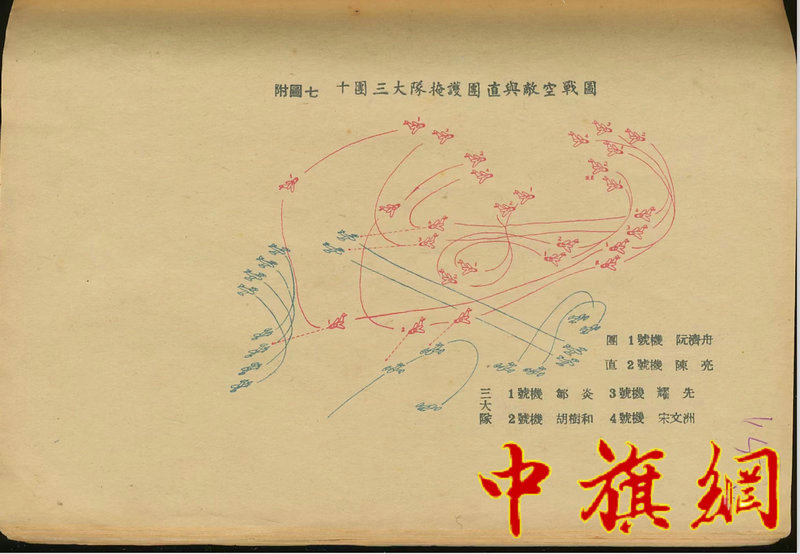 附圖七 十團三大隊掩護團直與敵空戰圖
團 1號機 阮濟舟
直 2號機 陳亮
三大隊 1號機 鄒炎 3號機 耀先
2號機 胡樹和 4號機 宋文洲
中旗網